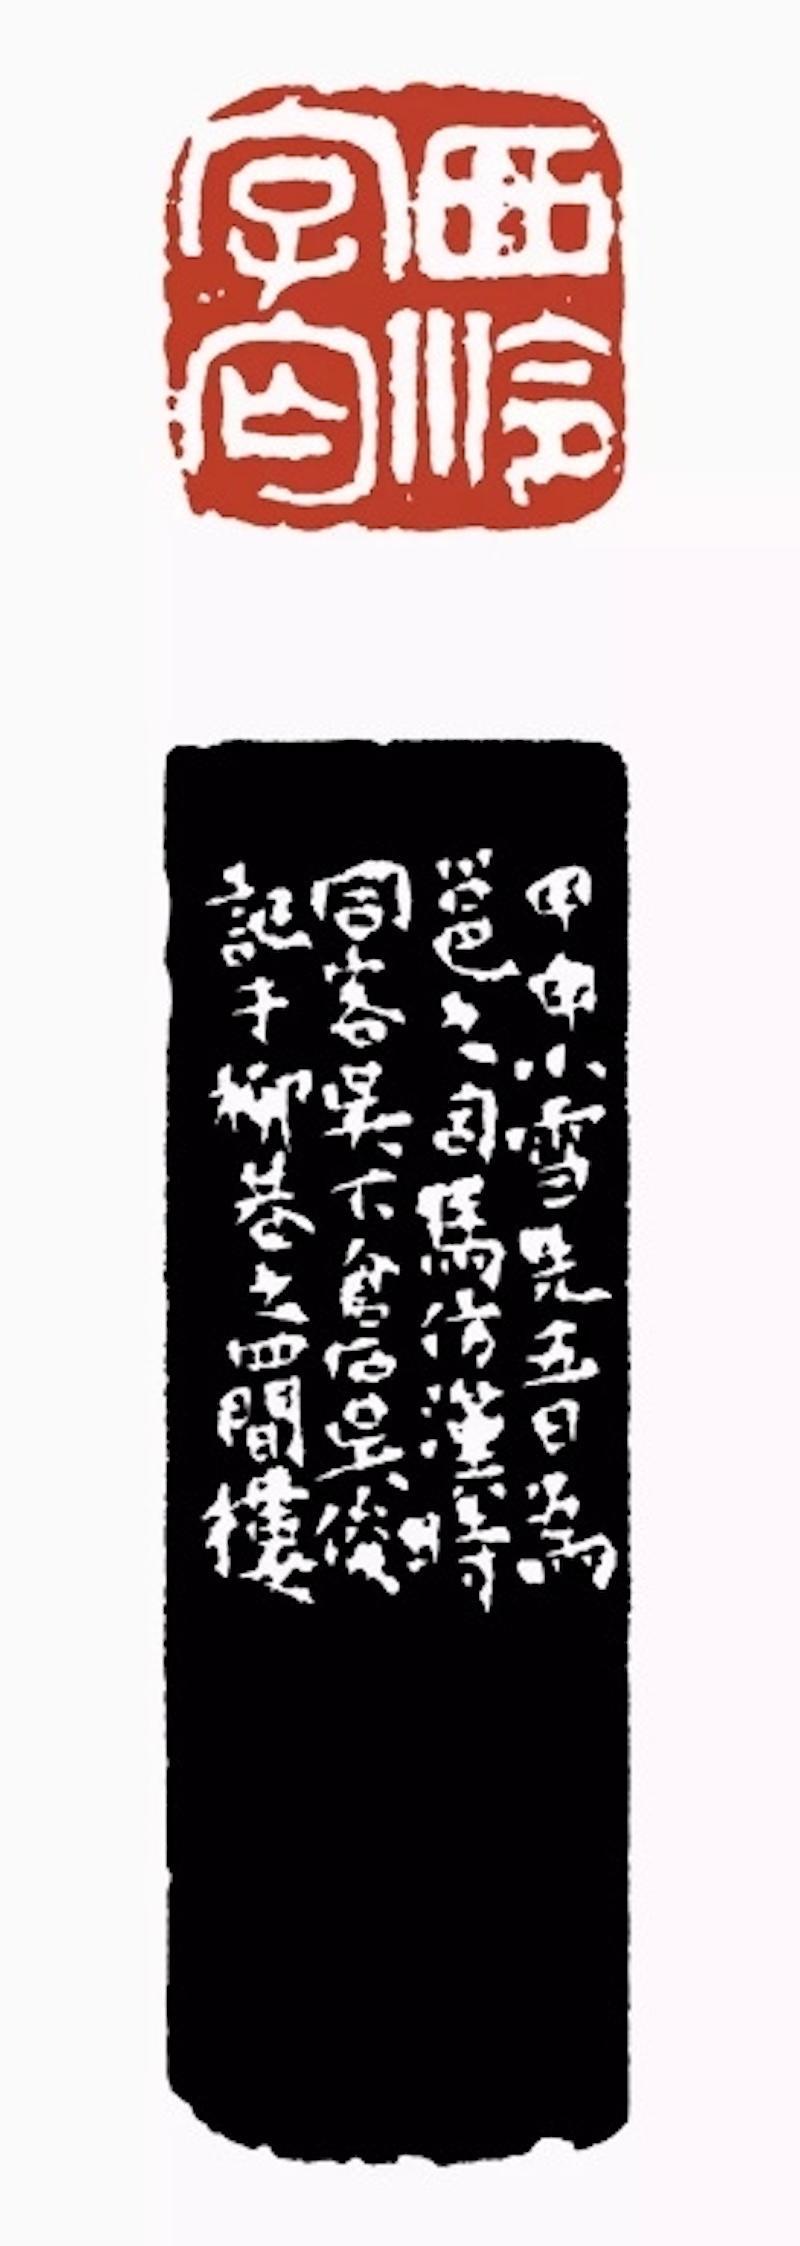 西泠
字匃
甲申小雪先五日為
邕之司馬仿漢時
同客吳下倉石吳俊
記于柳巷之四間樓